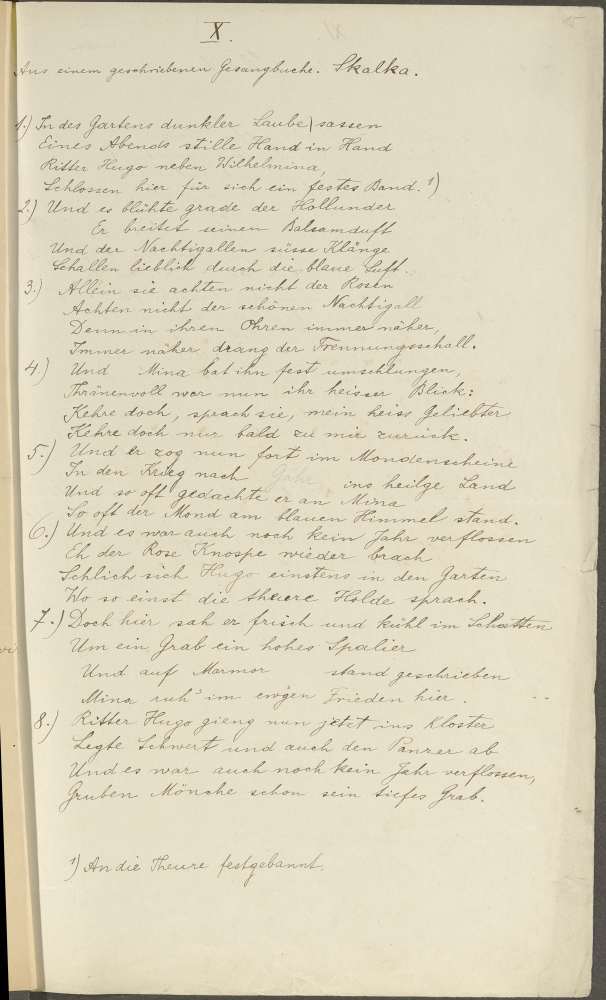 X.
15
Aus einem geschriebenen Gesangbuche. Skalka.
1.) In des Gartens dunkler Laube sassen
Eines Abends stille Hand in Hand
Ritter Hugo neben Wilhelmina,
Schlossen hier für sich ein festes Band. 1)
2.) Und es blühte grade der Hollunder
Er breitet seinen Balsamduft
Und der Nachtigallen süsse Klänge
Schallen lieblich durch die blaue Luft.
3.) Allein sie achten nicht der Rosen
Achten nicht der schönen Nachtigall
Denn in ihren Ohren immer näher,
Immer näher drang der Trennungsschall.
4.) Und Mina bat ihn fest umschlungen,
Thränenvoll war nun ihr heisser Blick:
Kehre doch, sprach sie, mein heiss Geliebter
Kehre doch nur bald zu mir zurück.
5.) Und er zog nun fort im Mondenscheine
In den Krieg nach ins heilge Land
Und so oft gedachte er an Mina
So oft der Mond am blauen Himmel stand.
6.) Und es war auch noch kein Jahr verflossen
Eh der Rose Knospe wieder brach
Schlich sich Hugo einstens in den Garten
Wo so einst die theure Holde sprach.
7.) Doch hier sah er frisch und kühl im Schatten
Um ein Grab ein hohes Spalier
Und auf Marmor stand geschrieben
Mina ruh' im ewgen Frieden hier.
8.) Ritter Hugo gieng nun jetzt ins Kloster
Legte Schwert und auch den Panzer ab
Und es war auch noch kein Jahr verflossen,
Gruben Mönche schon sein tiefes Grab.
1) An die Theure festgebannt.